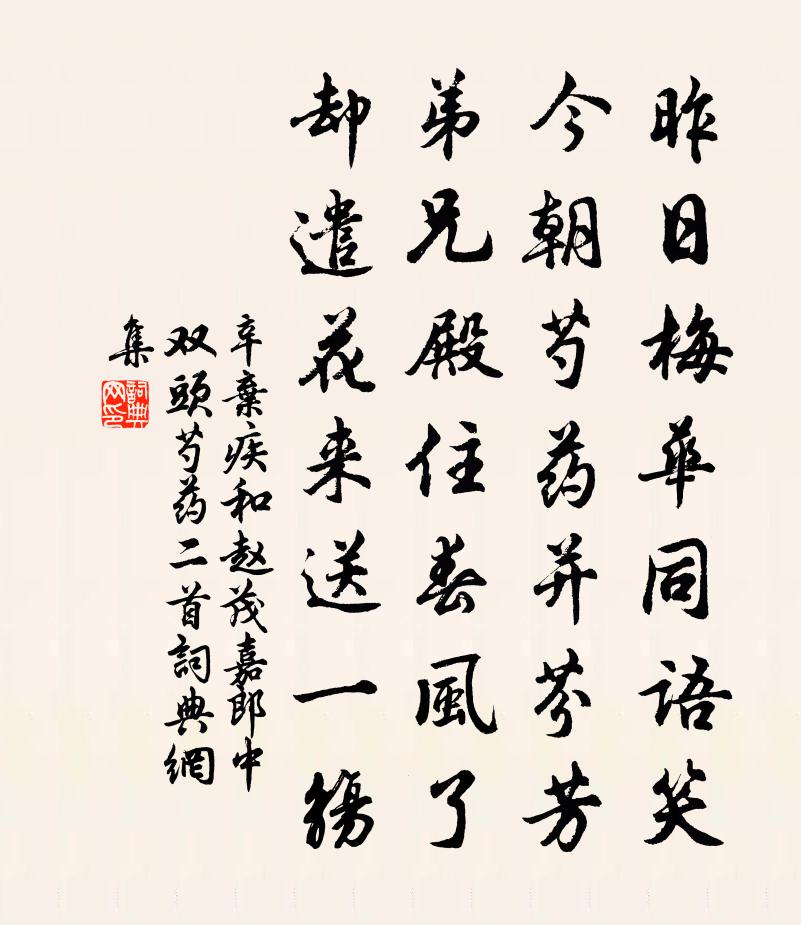 昨日梅華同語笑
今朝芍药并芬芳
弟兄殿住春風了
却遣花来送一觴
辛棄疾和赵茂嘉郎中
双頭芍药二首詞典網
集
詞典
网印